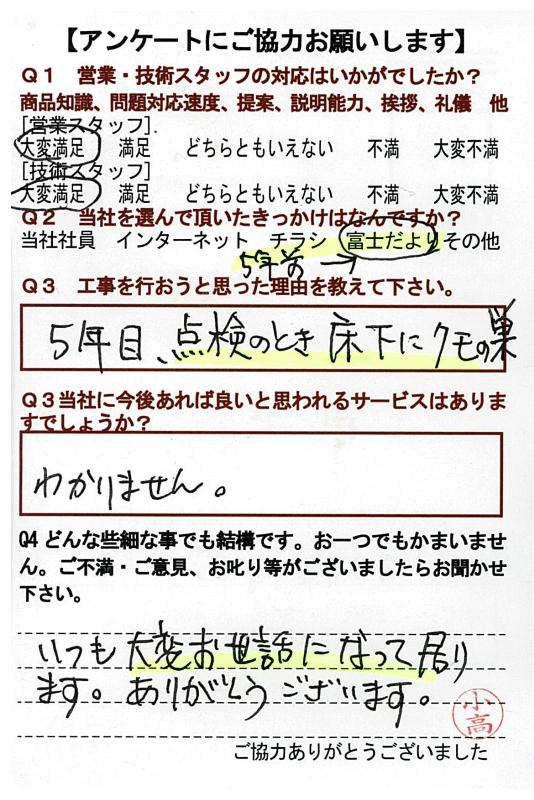 【アンケートにご協力お願いします】
Q1 営業・技術スタッフの対応はいかがでしたか?
商品知識、問題対応速度、提案、説明能力、挨拶、礼儀 他
[営業スタッフ].
大変満足 満足 どちらともいえない 不満 大変不満
[技術スタッフ]
大変満足 満足 どちらともいえない 不満 大変不満
Q2 当社を選んで頂いたきっかけはなんですか?
当社社員 インターネット チラシ 富士だより その他
5年前→
Q3 工事を行おうと思った理由を教えて下さい。
5年目、点検のとき床下にクモの巣
Q3当社に今後あれば良いと思われるサービスはありま
すでしょうか?
わかりません。
Q4 どんな些細な事でも結構です。お一つでもかまいませ
ん。ご不満・ご意見、お叱り等がございましたらお聞かせ
下さい。
いつも大変お世話になって居り
ます。ありがとうございます。
小高
ご協力ありがとうございました